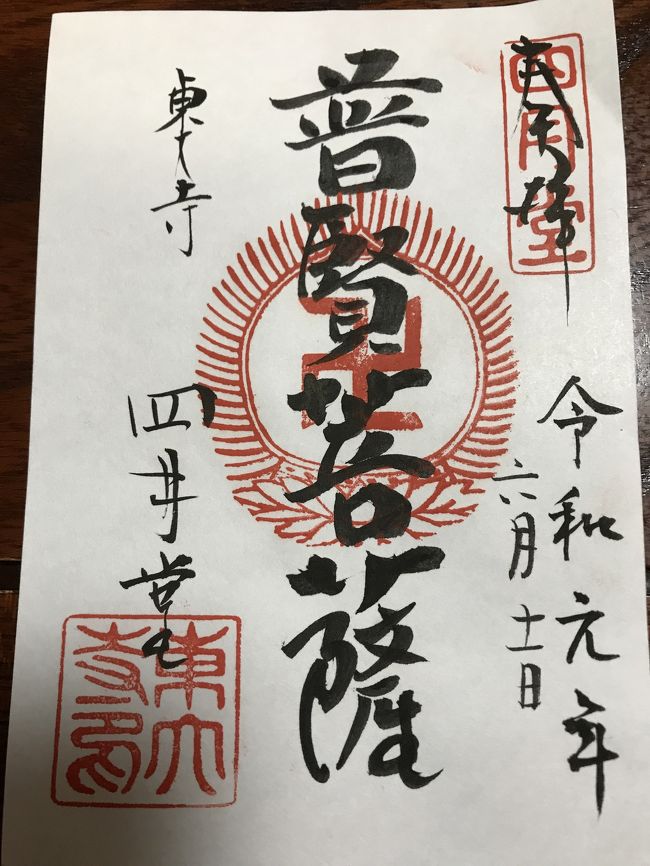 奉拝
四月堂
令和元年
六月十一日
普賢菩薩
東大寺
四月堂
東大寺印